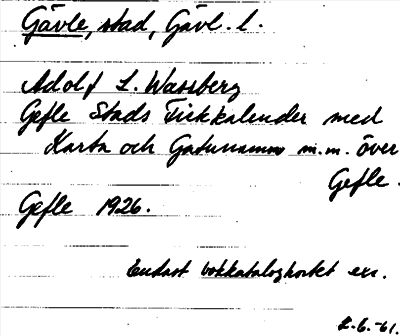 Gävle, stad, Gävl. l.
Adolf L. Wassberg
Gefle Stads Fickkalender med
Karta och Gatunamn m.m. över
Gefle.
Gefle 1926.
Endast bokkatalogkortet exc.
2.6.-61.